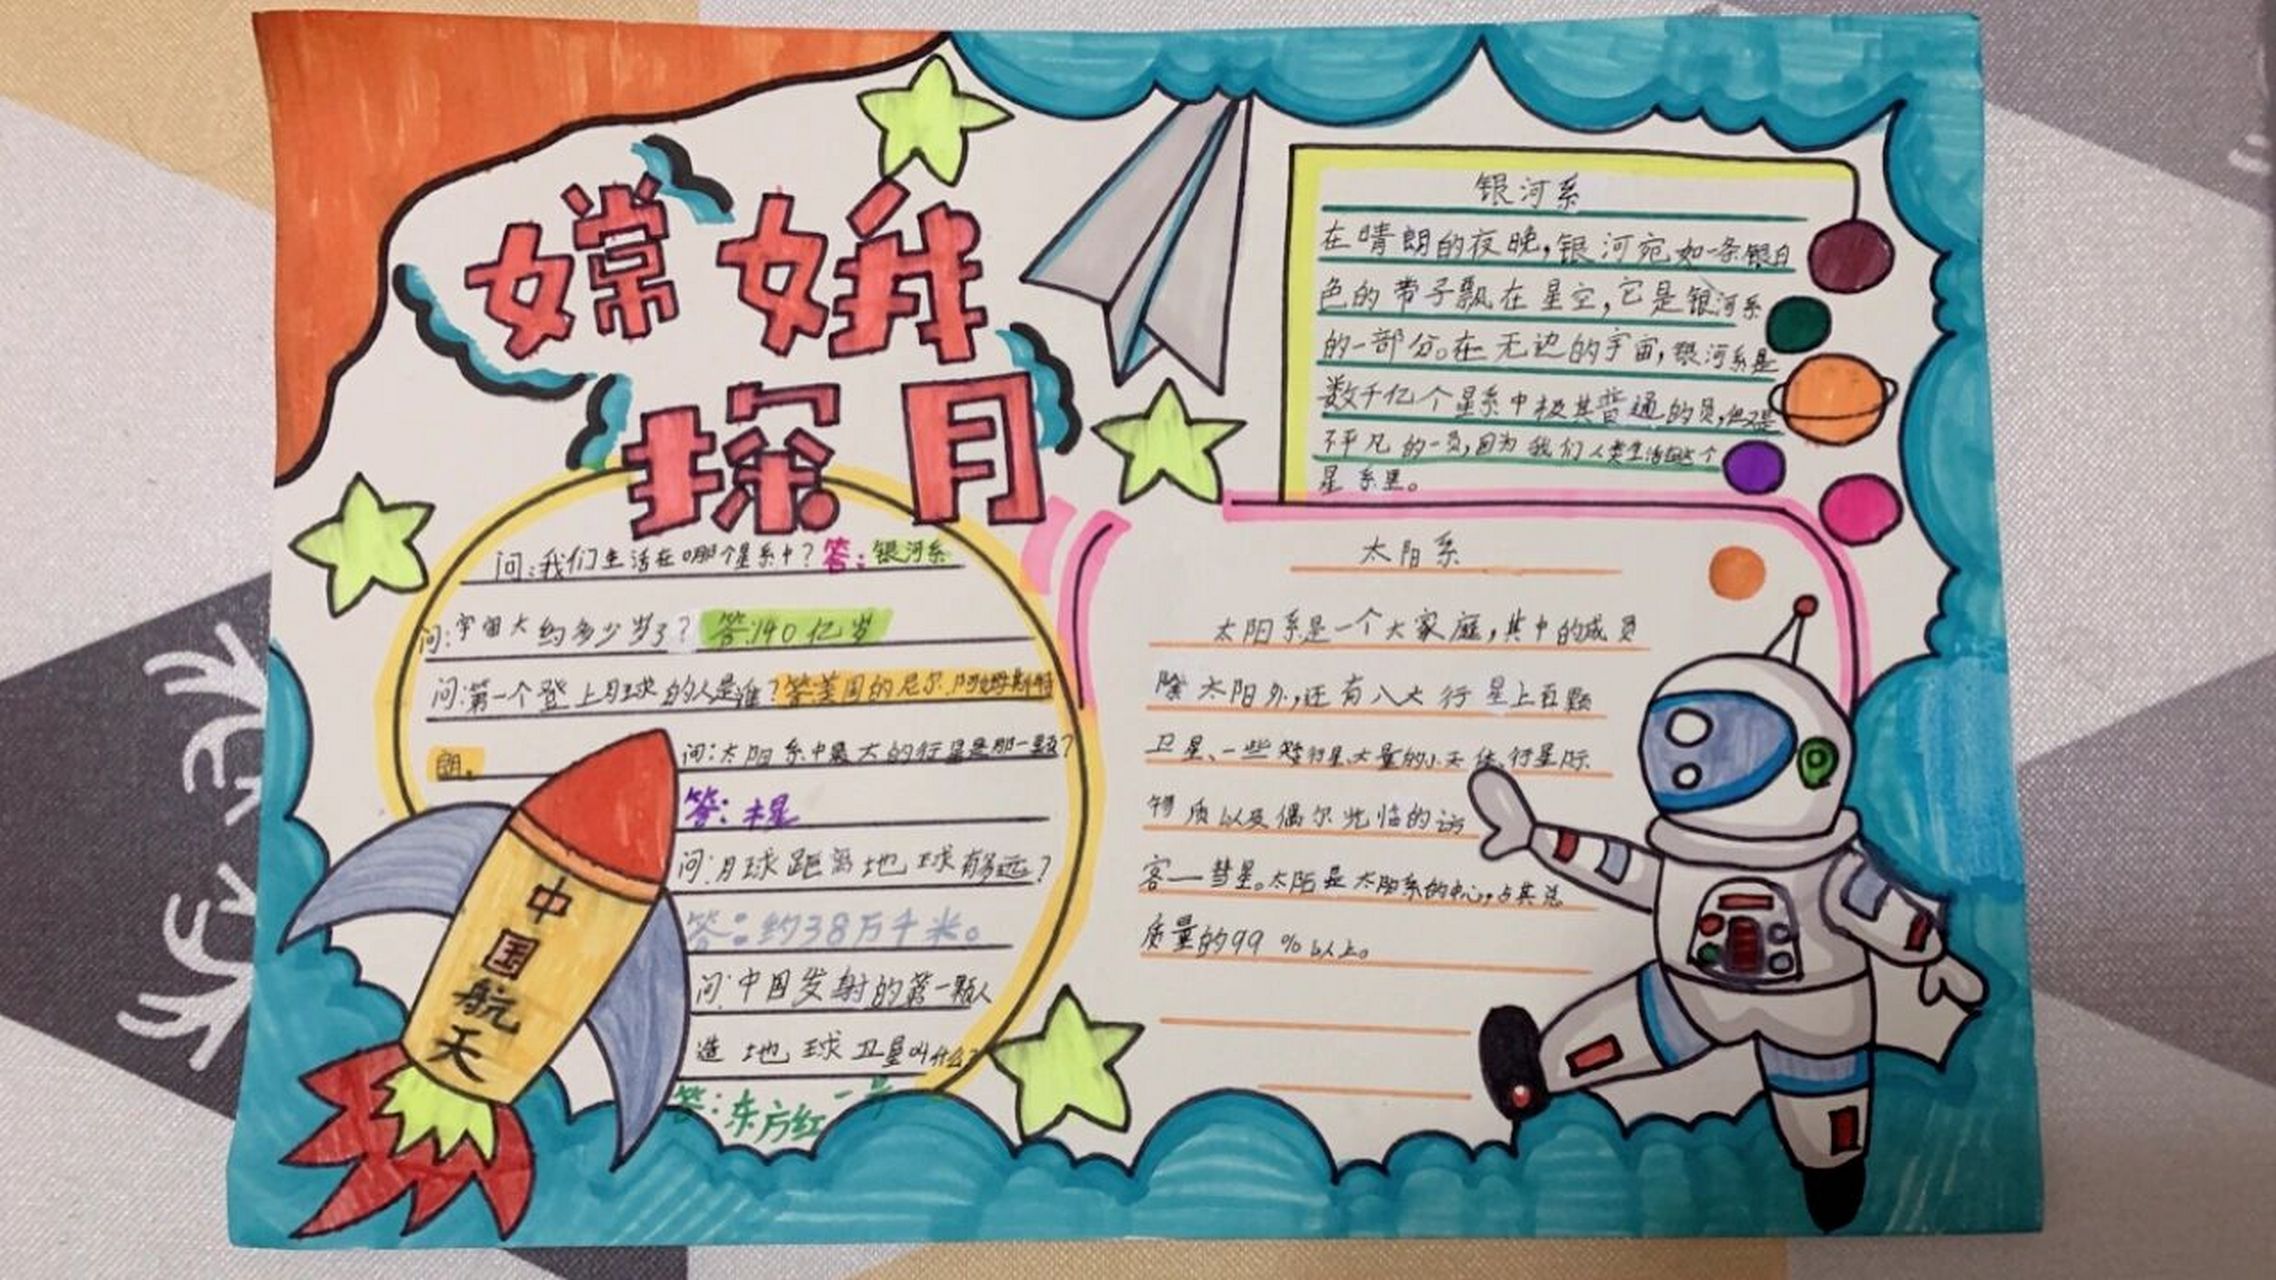 嫦娥
探月
问:我们生活在哪个星系中?答:银河系
问:宇宙大约多少岁了?答:140亿岁
问:第一个登上月球的人是谁?答美国的尼尔.阿姆斯特
朗。
问:太阳系中最大的行星是那一颗?
答:木星
问:月球距离地球有多远?
答:约38万千米。
问:中国发射的第一颗人
造地球卫星叫什么?
答:东方红一号
中
国
航
天
银河系
在晴朗的夜晚,银河宛如一条银白
色的带子飘在星空,它是银河系
的一部分。在无边的宇宙,银河系是
数千亿个星系中极其普通的员,但又是
不平凡的一员,因为我们人类生活在这个
星系里。
太阳系
太阳系是一个大家庭,其中的成员
除太阳外,还有八大行星上百颗
卫星、一些矮行星、大量的小天体、行星际
物质以及偶尔光临的访
客—彗星。太阳是太阳系的中心,占其总
质量的99%以上。